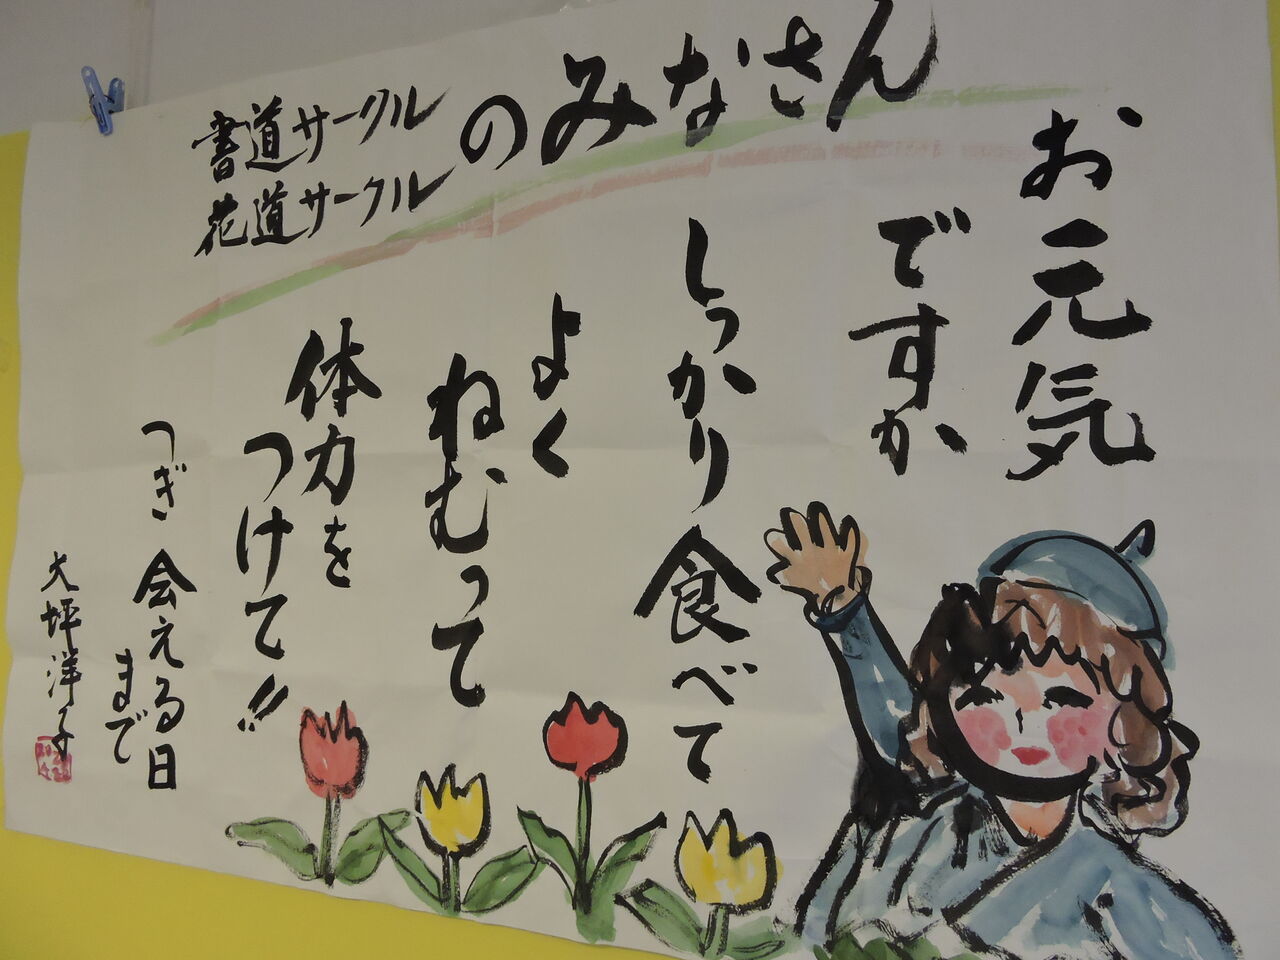 書道サークル
花道サークル
のみなさん
お元気
ですか
しっかり食べて
よく
ねむって
体力を
つけて!!
つぎ会える日
まで
大坪洋子